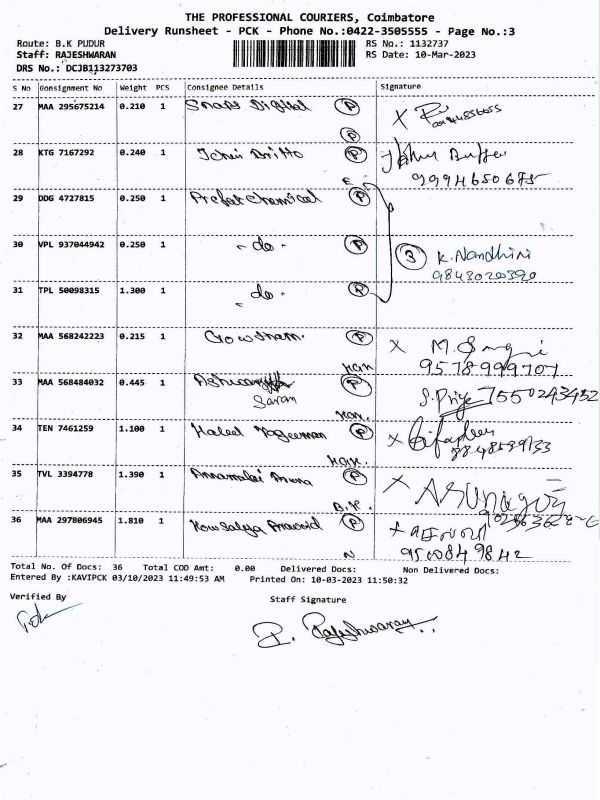 THE PROFESSIONAL COURIERS, Coimbatore
Delivery Runsheet - PCK - Phone No.:0422-3505555 - Page No.:3
Route: B.K PUDUR RS No.: 1132737
Staff: RAJESHWARAN RS Date: 10-Mar-2023
DRS No.: DCJB113273703
S No Consignment No Weight PCS Consignee Details Signature
27 MAA 295675214 0.210 1 Snaps Digital P
P
28 KTG 7167292 0.240 1 Britto P
9994650675
29 DDG 4727815 0.250 1 Prefet chemical P
30 VPL 937044942 0.250 1 - do - P 3 K. Nandhini
9843020390
31 TPL 50098315 1.300 1 - do - P
32 MAA 568242223 0.215 1 Gowsham. P X M.
9578999707
33 MAA 568484032 0.445 1 P
Saran S. Priya 7550243452
34 TEN 7461259 1.100 1 Haleel P X
8848599133
35 TVL 3394778 1.390 1 Annamalai P X
B.K.
36 MAA 297806945 1.810 1 Kowsalya P X
N 9500849842
Total No. Of Docs: 36 Total COD Amt: 0.00 Delivered Docs: Non Delivered Docs:
Entered By :KAVIPCK 03/10/2023 11:49:53 AM Printed On: 10-03-2023 11:50:32
Verified By Staff Signature
P. Rajeshwaran